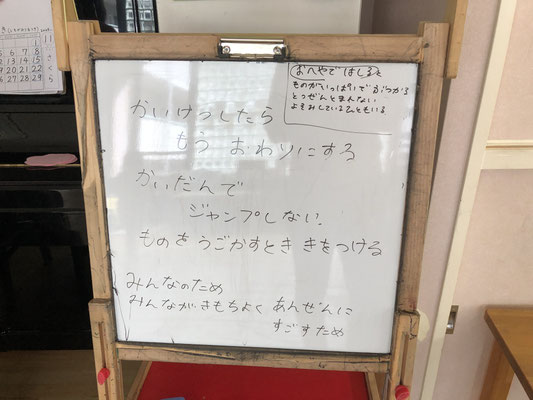 おへやで はしると
ものがいっぱいで ぶつかる
とつぜんとまんない
よそみしているひともいる
かいけつしたら
もう おわりにする
かいだんで
ジャンプしない.
ものを うごかすとき きをつける
みんなのため
みんながきもちよく あんぜんに
すごすため
11
1
5 6 7 8
12 13 14 15
19 20 21 22
26 27 28 29